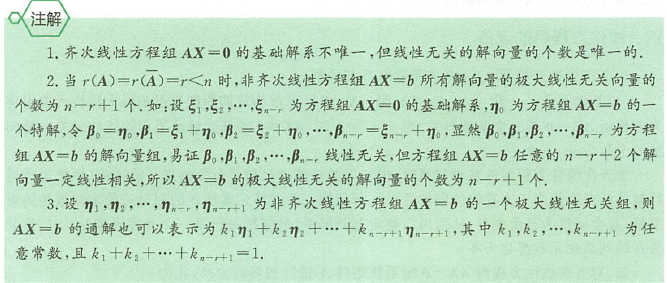 注解
1. 齐次线性方程组 AX=0 的基础解系不唯一,但线性无关的解向量的个数是唯一的.
2. 当 r(A)=r(A̅)=r<n 时,非齐次线性方程组 AX=b 所有解向量的极大线性无关向量的
个数为 n-r+1 个. 如:设 ξ₁,ξ₂,⋯,ξₙ₋ᵣ 为方程组 AX=0 的基础解系,η₀ 为方程组 AX=b 的一
个特解,令 β₀=η₀,β₁=ξ₁+η₀,β₂=ξ₂+η₀,⋯,βₙ₋ᵣ=ξₙ₋ᵣ+η₀,显然 β₀,β₁,β₂,⋯,βₙ₋ᵣ 为方程
组 AX=b 的解向量组,易证 β₀,β₁,β₂,⋯,βₙ₋ᵣ 线性无关,但方程组 AX=b 任意的 n-r+2 个解
向量一定线性相关,所以 AX=b 的极大线性无关的解向量的个数为 n-r+1 个.
3. 设 η₁,η₂,⋯,ηₙ₋ᵣ,ηₙ₋ᵣ₊₁ 为非齐次线性方程组 AX=b 的一个极大线性无关组,则
AX=b 的通解也可以表示为 k₁η₁+k₂η₂+⋯+kₙ₋ᵣ₊₁ηₙ₋ᵣ₊₁,其中 k₁,k₂,⋯,kₙ₋ᵣ₊₁ 为任
意常数,且 k₁+k₂+⋯+kₙ₋ᵣ₊₁=1.